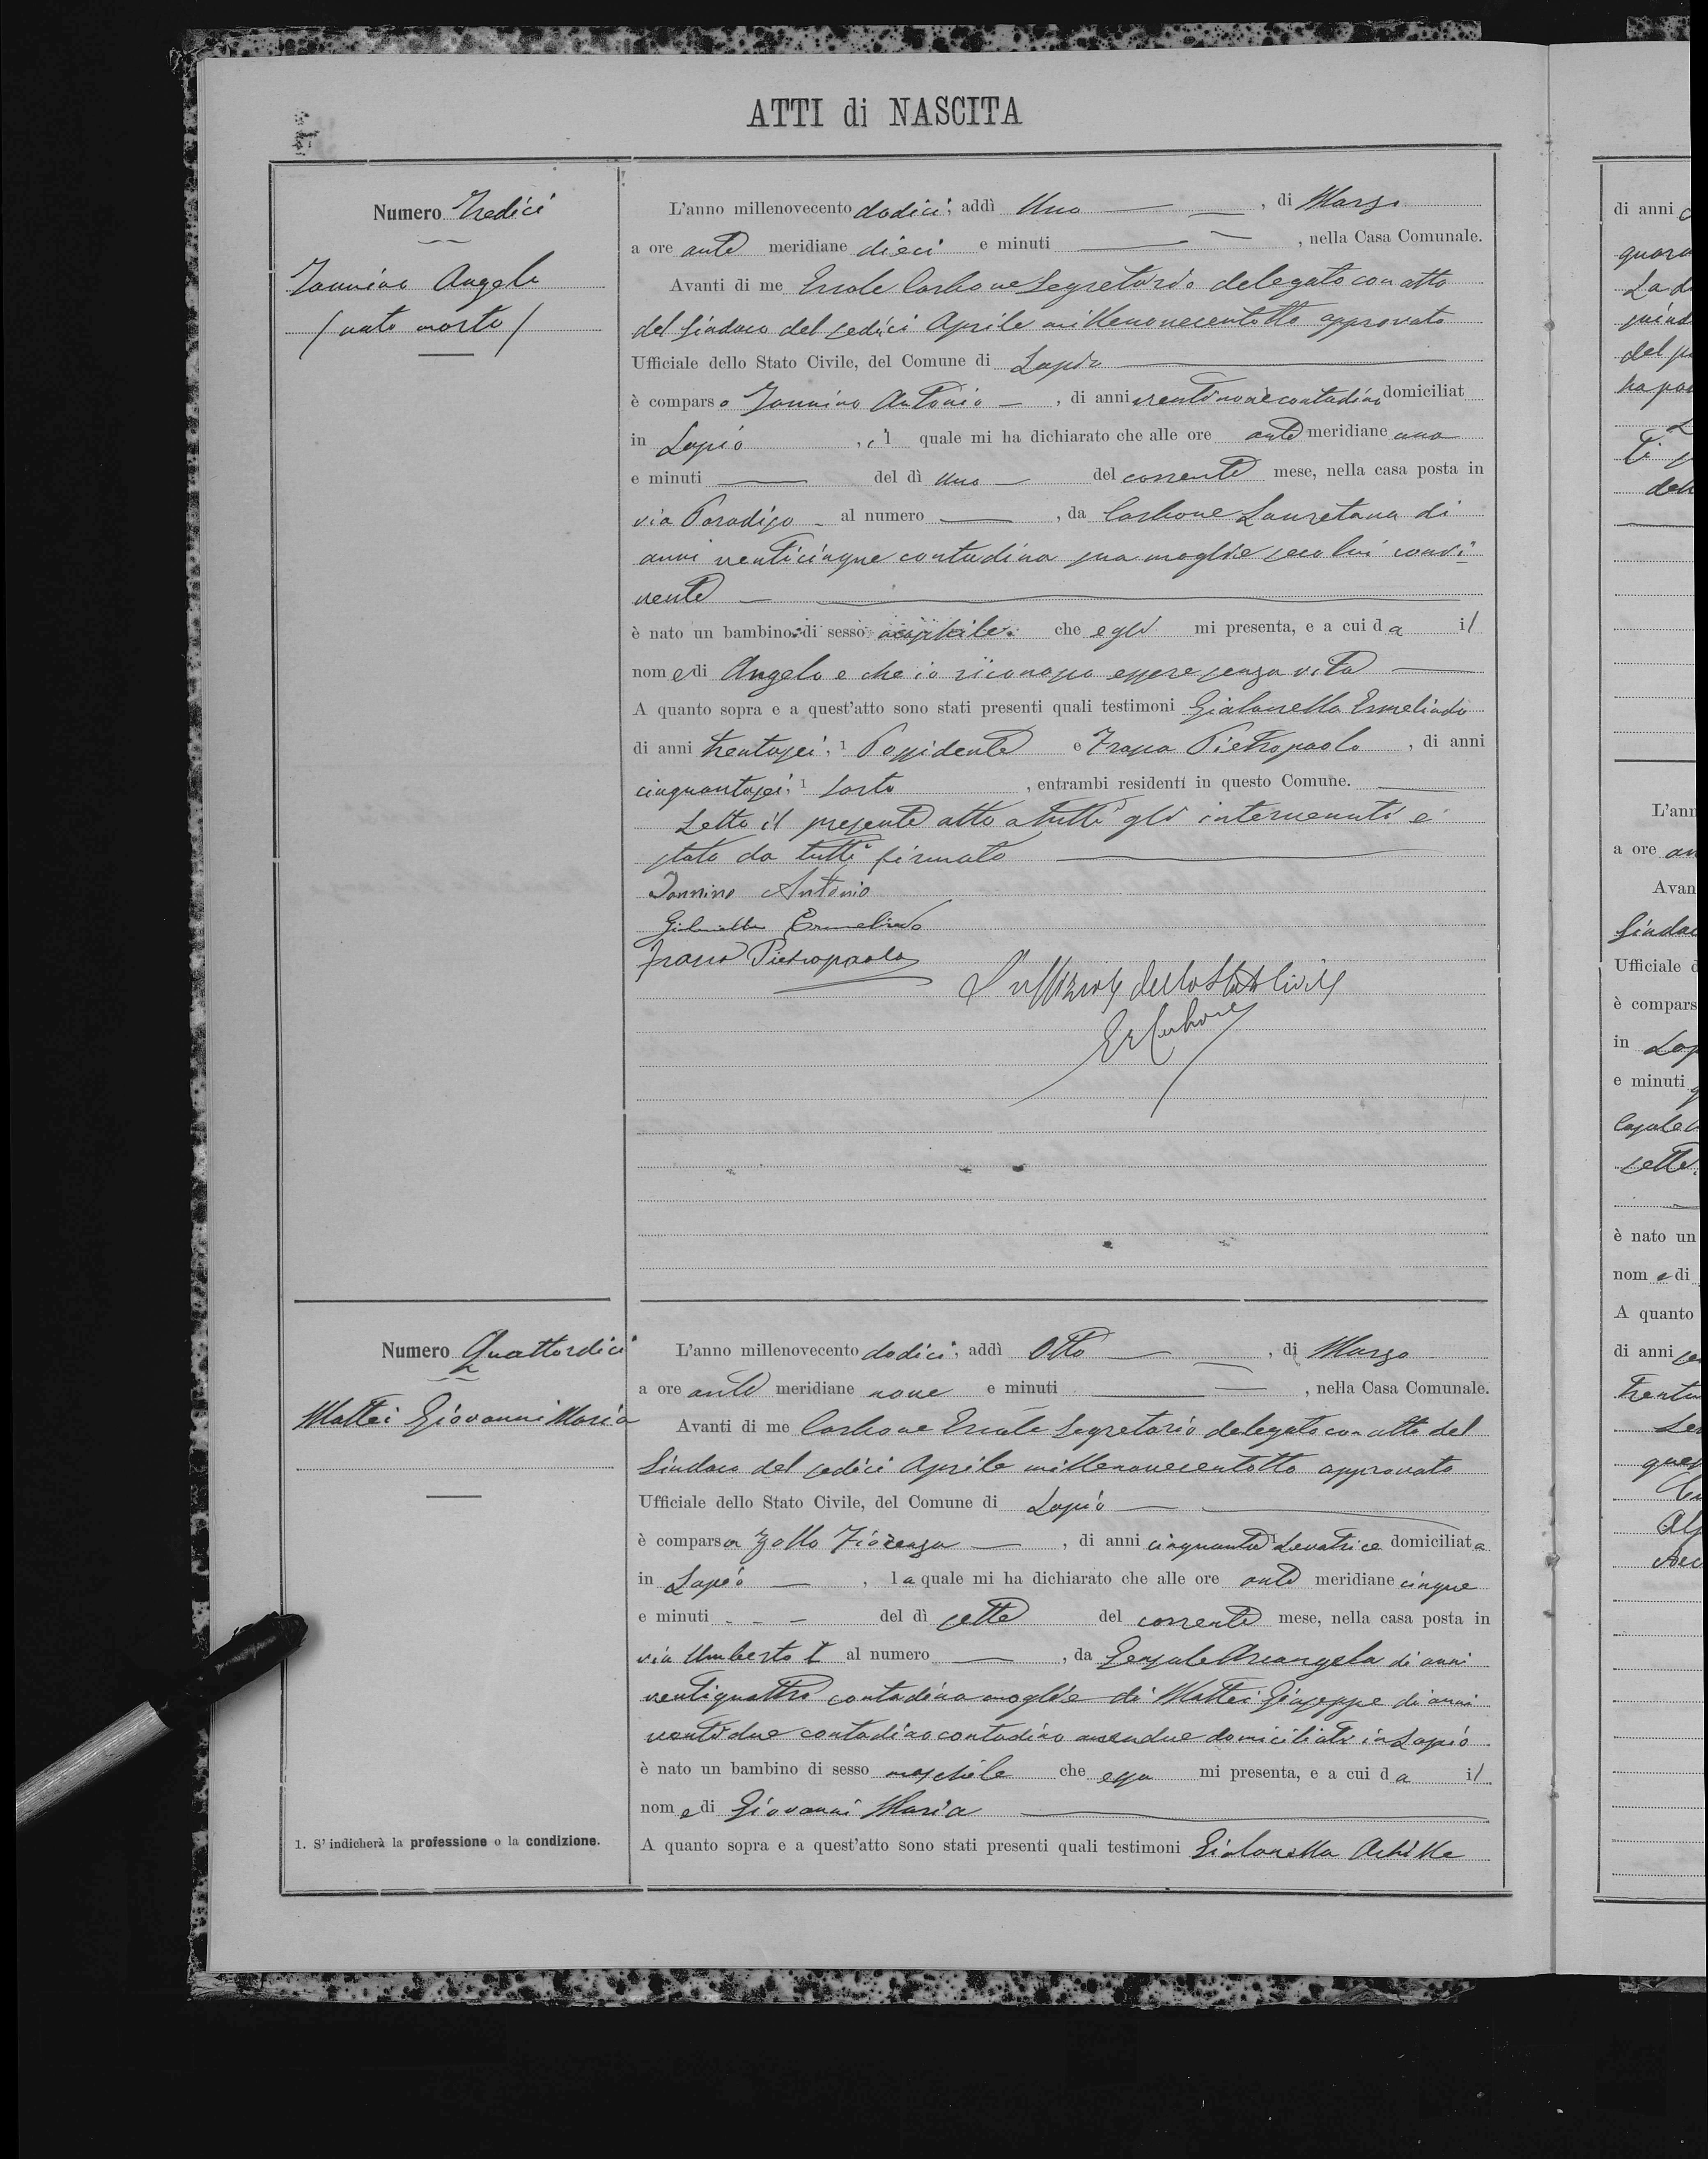 ATTI di NASCITA
Numero Tredici
Iannino Angelo
/ nato morto /
L'anno millenovecento dodici, addì Uno, di Marzo
a ore ante meridiane dieci e minuti , nella Casa Comunale.
Avanti di me Ercole Carbone Segretario delegato con atto
del Sindaco del sedici Aprile millenovecentotto approvato
Ufficiale dello Stato Civile, del Comune di Lapio
è comparso Iannino Antonio, di anni ventinove contadino domiciliat
in Lapio, il quale mi ha dichiarato che alle ore ante meridiane una
e minuti del dì uno del corrente mese, nella casa posta in
via Paradiso al numero , da Carbone Lauretana di
anni venticinque contadina sua moglie seco lui convi
vente
è nato un bambino di sesso maschile che egli mi presenta, e a cui da il
nome di Angelo e che io riconosco essere senza vita
A quanto sopra e a quest'atto sono stati presenti quali testimoni Gialanella Ermelindo
di anni trentasei, 1 Possidente e Pietropaolo, di anni
cinquantasei, 1 Sarto, entrambi residenti in questo Comune.
Letto il presente atto a tutti gli intervenuti è
stato da tutti firmato
Iannino Antonio
Gialanella Ermelindo
Pietropaolo
L'uffiziale dello Stato Civile
E Carbone
Numero Quattordici
Mattei Giovanni Maria
L'anno millenovecento dodici, addì Otto, di Marzo
a ore ante meridiane nove e minuti , nella Casa Comunale.
Avanti di me Carbone Ercole Segretario delegato con atto del
Sindaco del sedici Aprile millenovecentotto approvato
Ufficiale dello Stato Civile, del Comune di Lapio
è comparsa Zollo Fiorenza, di anni cinquanta 1 Levatrice domiciliata
in Lapio, la quale mi ha dichiarato che alle ore ante meridiane cinque
e minuti - - - del dì sette del corrente mese, nella casa posta in
via Umberto I al numero , da Arcangela di anni
ventiquattro contadina moglie di Mattei Giuseppe di anni
ventidue contadino contadino amendue domiciliati in Lapio
è nato un bambino di sesso maschile che essa mi presenta, e a cui da il
nome di Giovanni Maria
A quanto sopra e a quest'atto sono stati presenti quali testimoni Gialanella Achille
1. S'indicherà la professione o la condizione.
di anni
La d
del p
L'ann
a ore an
Avan
Sindac
Ufficiale d
è compars
in Lap
e minuti
sette
è nato un
nome di
A quanto
di anni